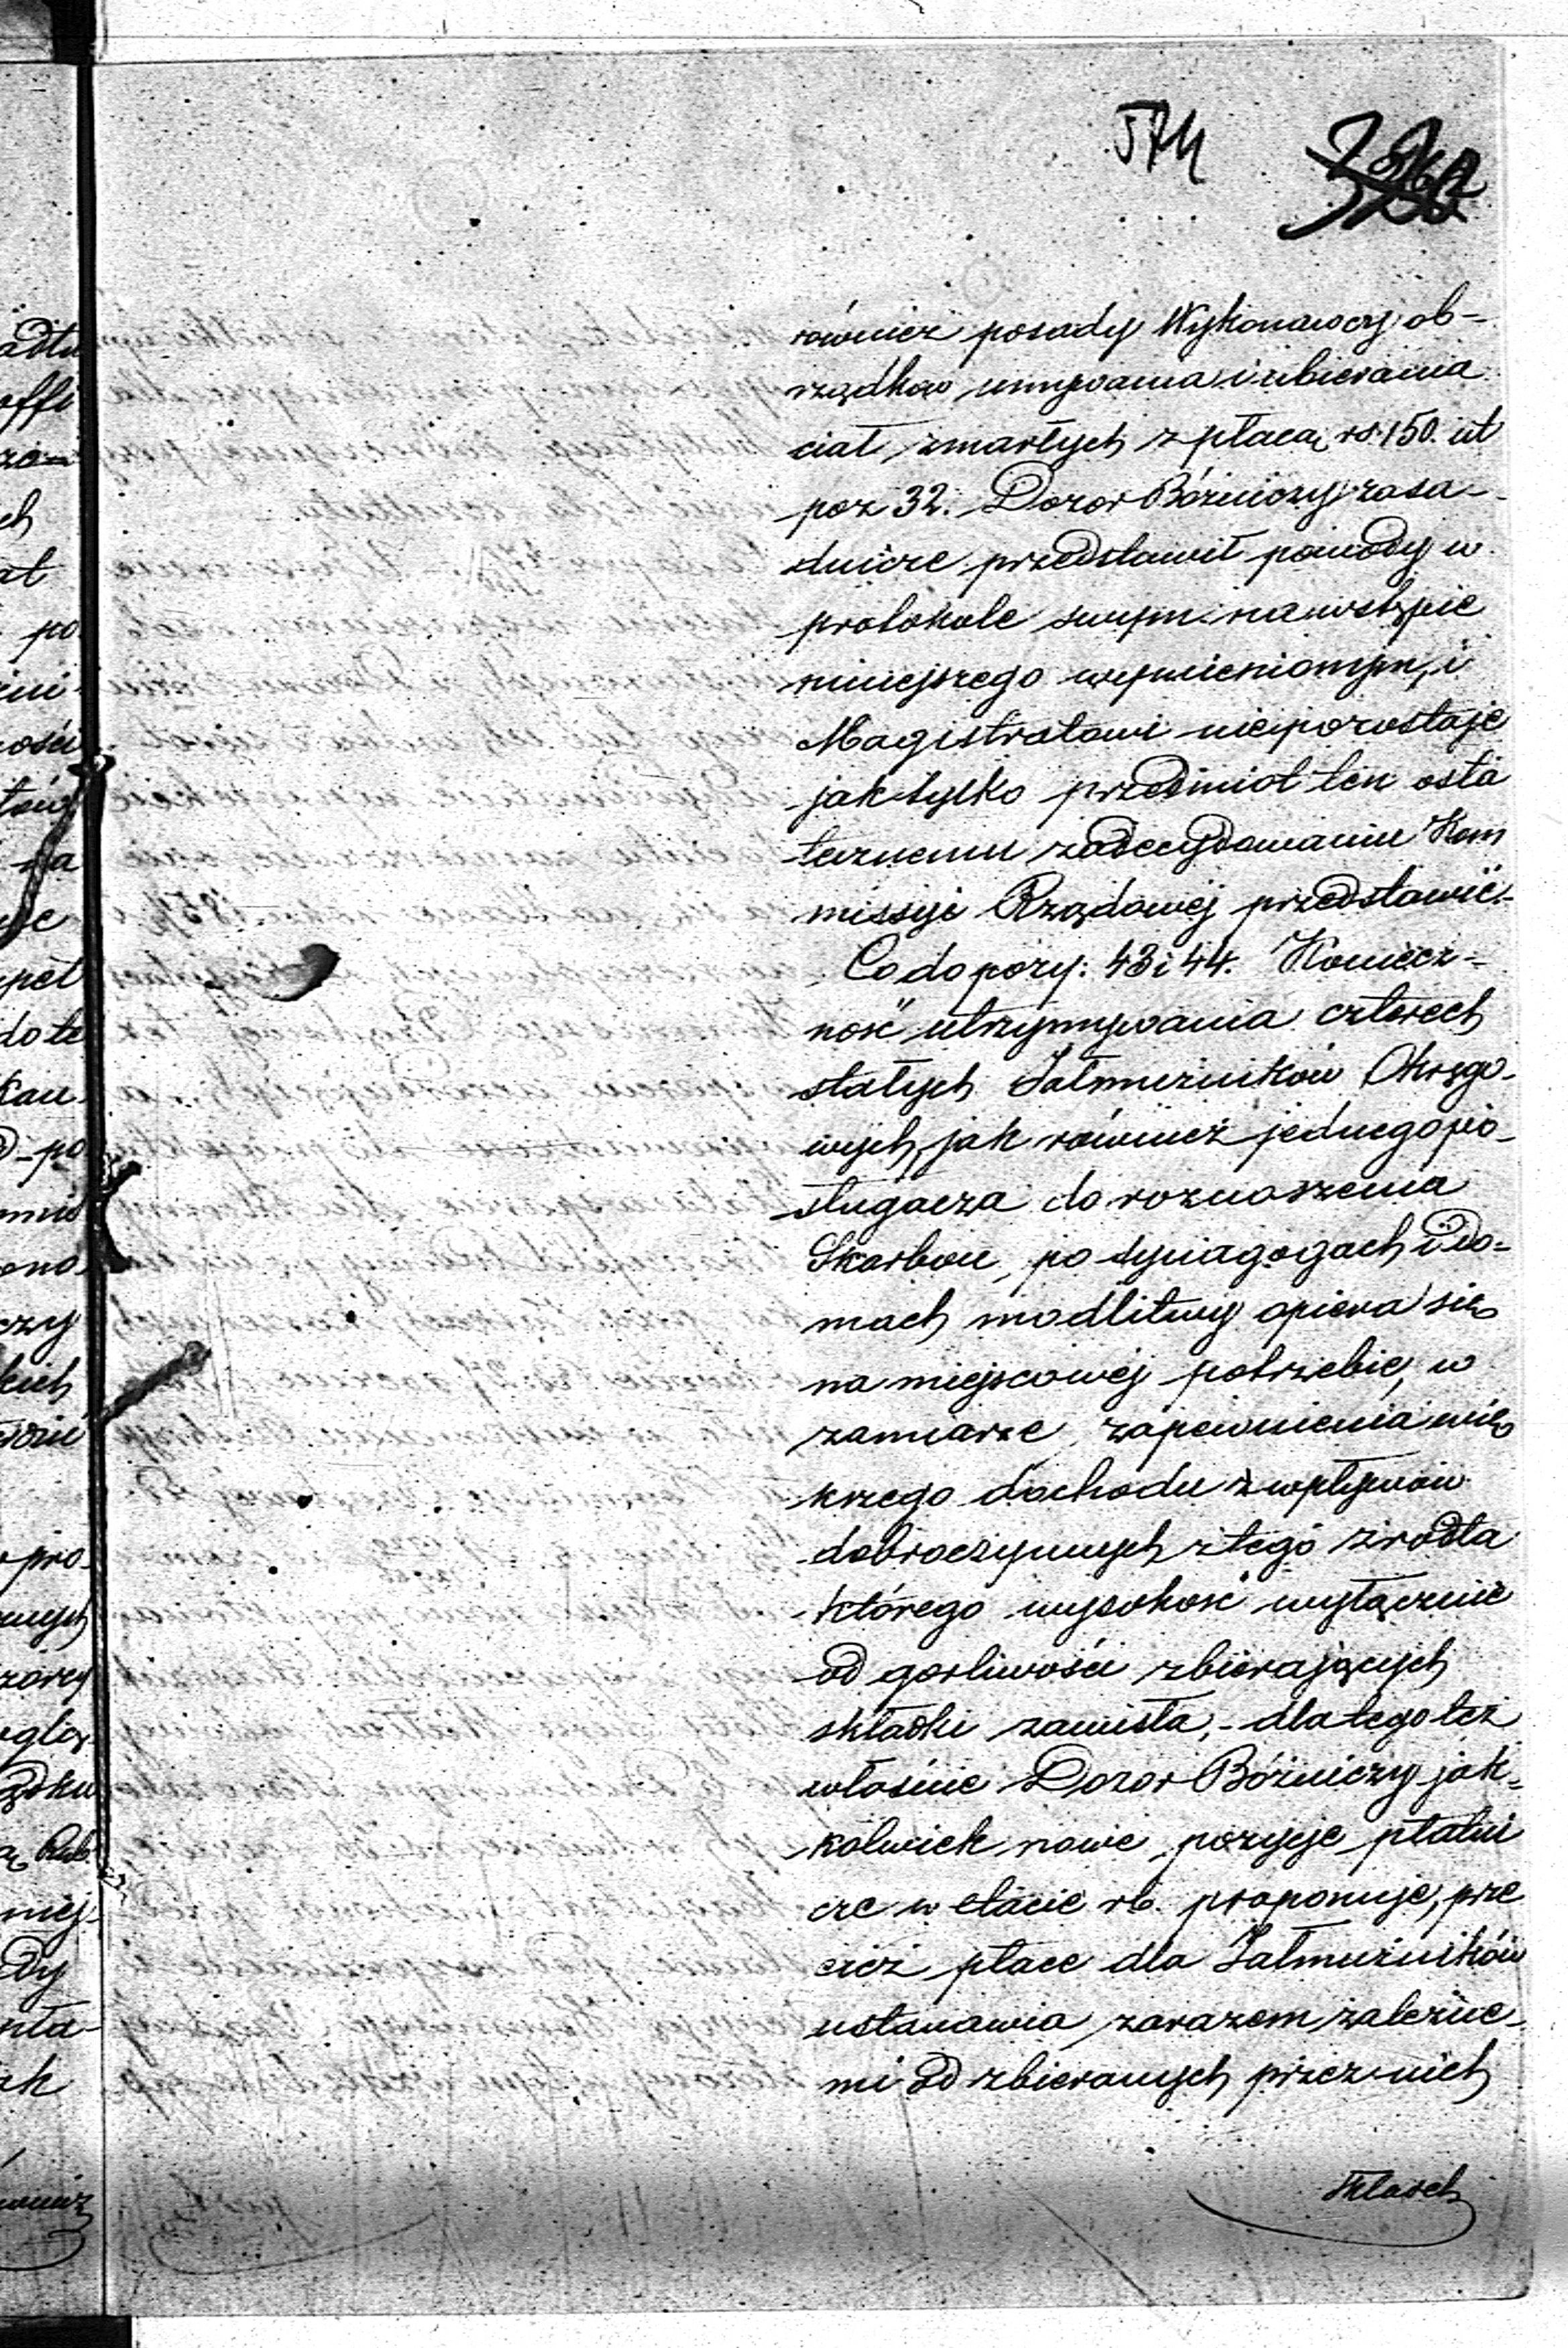 574
również posady Wykonawcy ob-
rządków umywania i ubierania
ciał zmarłych z płacą rs. 150. ut
poz 32. Dozor Bóżniczy zasa-
dnicze przedstawił powody w
protokole swym na wstępie
niniejszego wymienionym, i
Magistratowi niepozostaje
jak tylko przedmiot ten osta
tecznemu zadecydowaniu Kom
missyi Rządowéj przedstawić.-
Co do pozy: 43 i 44. Koniecz-
ność utrzymywania czterech
stałych Jałmużników Okręgo-
wych, jak również jednego po-
sługacza do roznoszenia
Skarbon, po synagogach i do-
mach modlitwy opiera się
na miejscowéj potrzebie, w
zamiarze zapewnienia wię
kszego dochodu z wpływów
dobroczynnych z tego źrodła
którego wysokość wyłącznie
od gorliwości zbierających
składki zawisła, - dla tego też
właśnie Dozor Bóżniczy jak-
kolwiek nowe pozycje płatni
cze w etacie rb. proponuje, prze
cież płace dla Jałmużników
ustanawia zarazem zależne-
mi od zbieranych przez nich